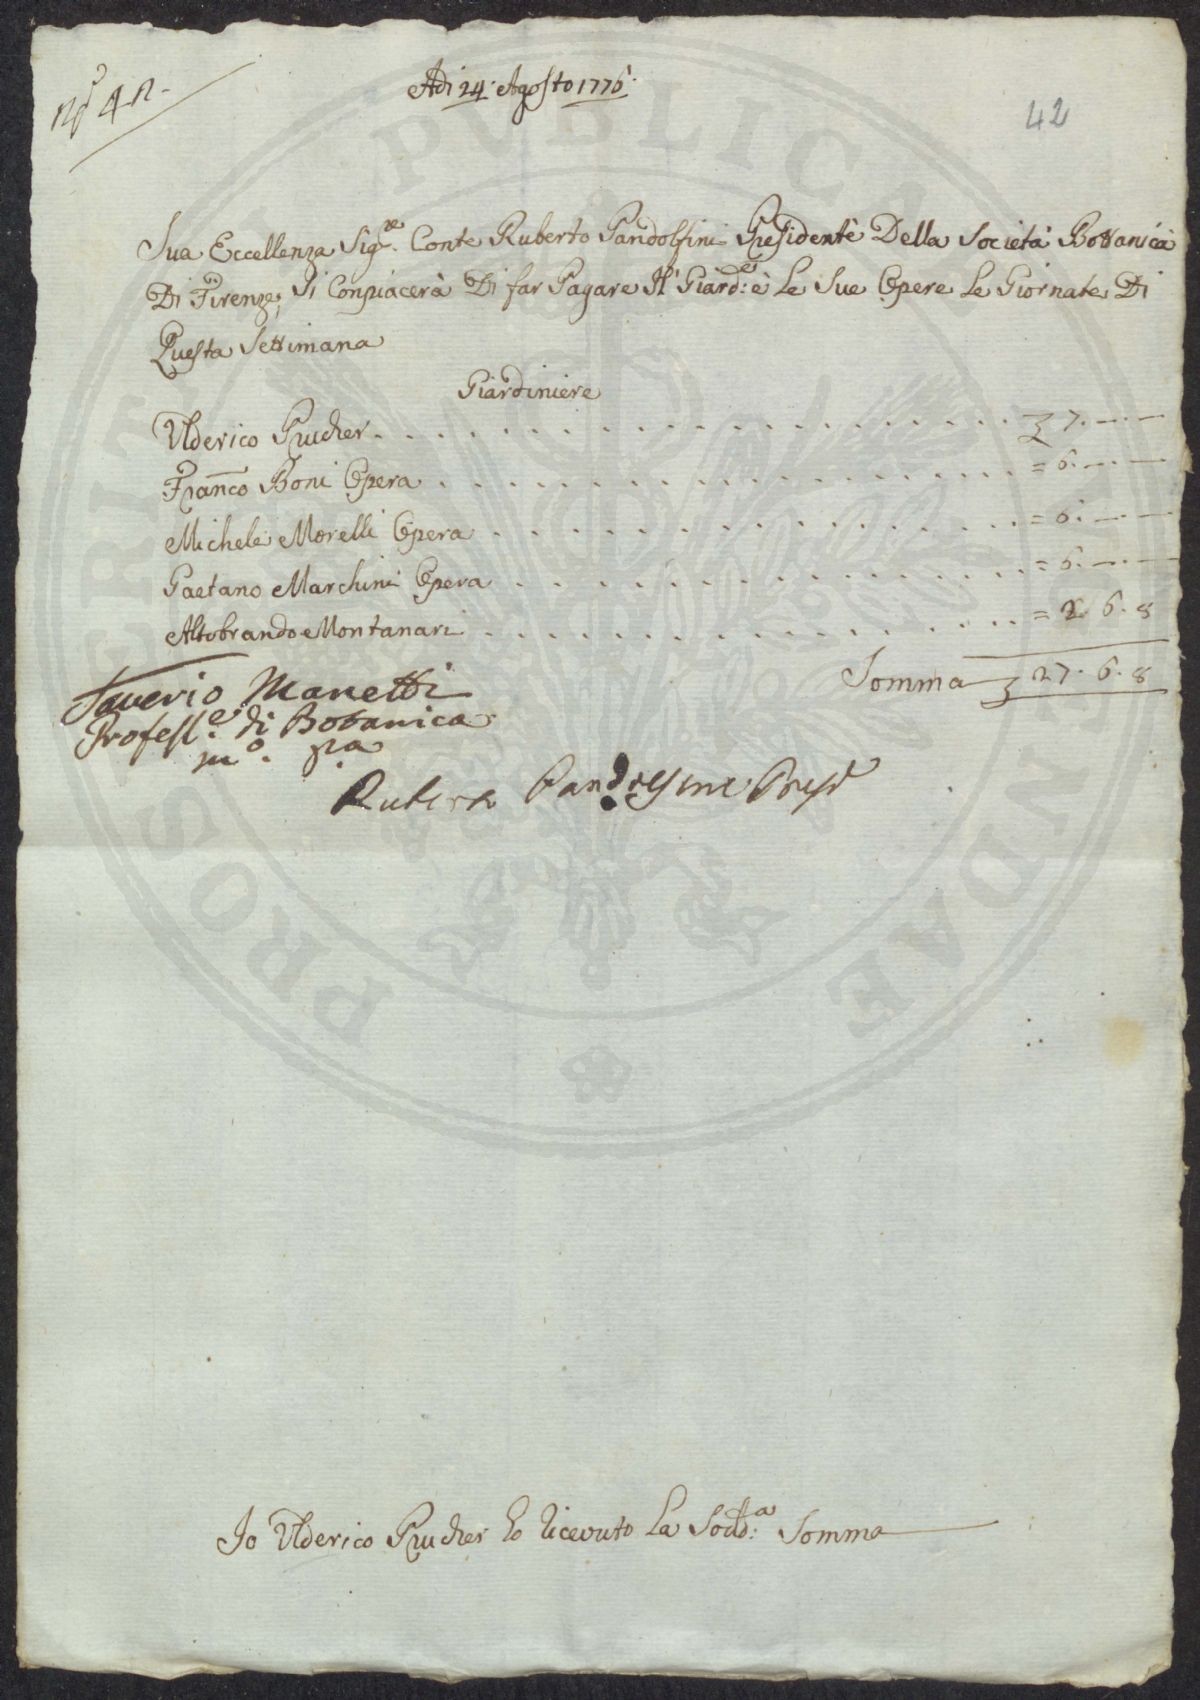 N.° 42.
Adi 24. Agosto 1776.
42
Sua Eccellenza Sig.re Conte Ruberto Pandolfini Presidente Della Società Bottanica
Di Firenze, Si Conpiacerà Di far Pagare Il Giard.e è Le Sue Opere Le Giornate Di
Questa Settimana
Giardiniere
Ulderico Prucher . . . . . . . . . . . . . . . . £ 7. — —
Franco Boni Opera . . . . . . . . . . . . . . . . = 6. — —
Michele Morelli Opera . . . . . . . . . . . . . . = 6. — —
Gaetano Marchini Opera . . . . . . . . . . . . . = 6. — —
Altobrando Montanari . . . . . . . . . . . . . . = 2. 6. 8
Somma £ 27. 6. 8
Saverio Manetti
Profess.e di Botanica
m.o p.a
Ruberto Pandolfini Presid
Io Ulderico Prucher ho ricevuto La Sodd.a Somma
PROSPERITATI PUBLICAE AUGENDAE